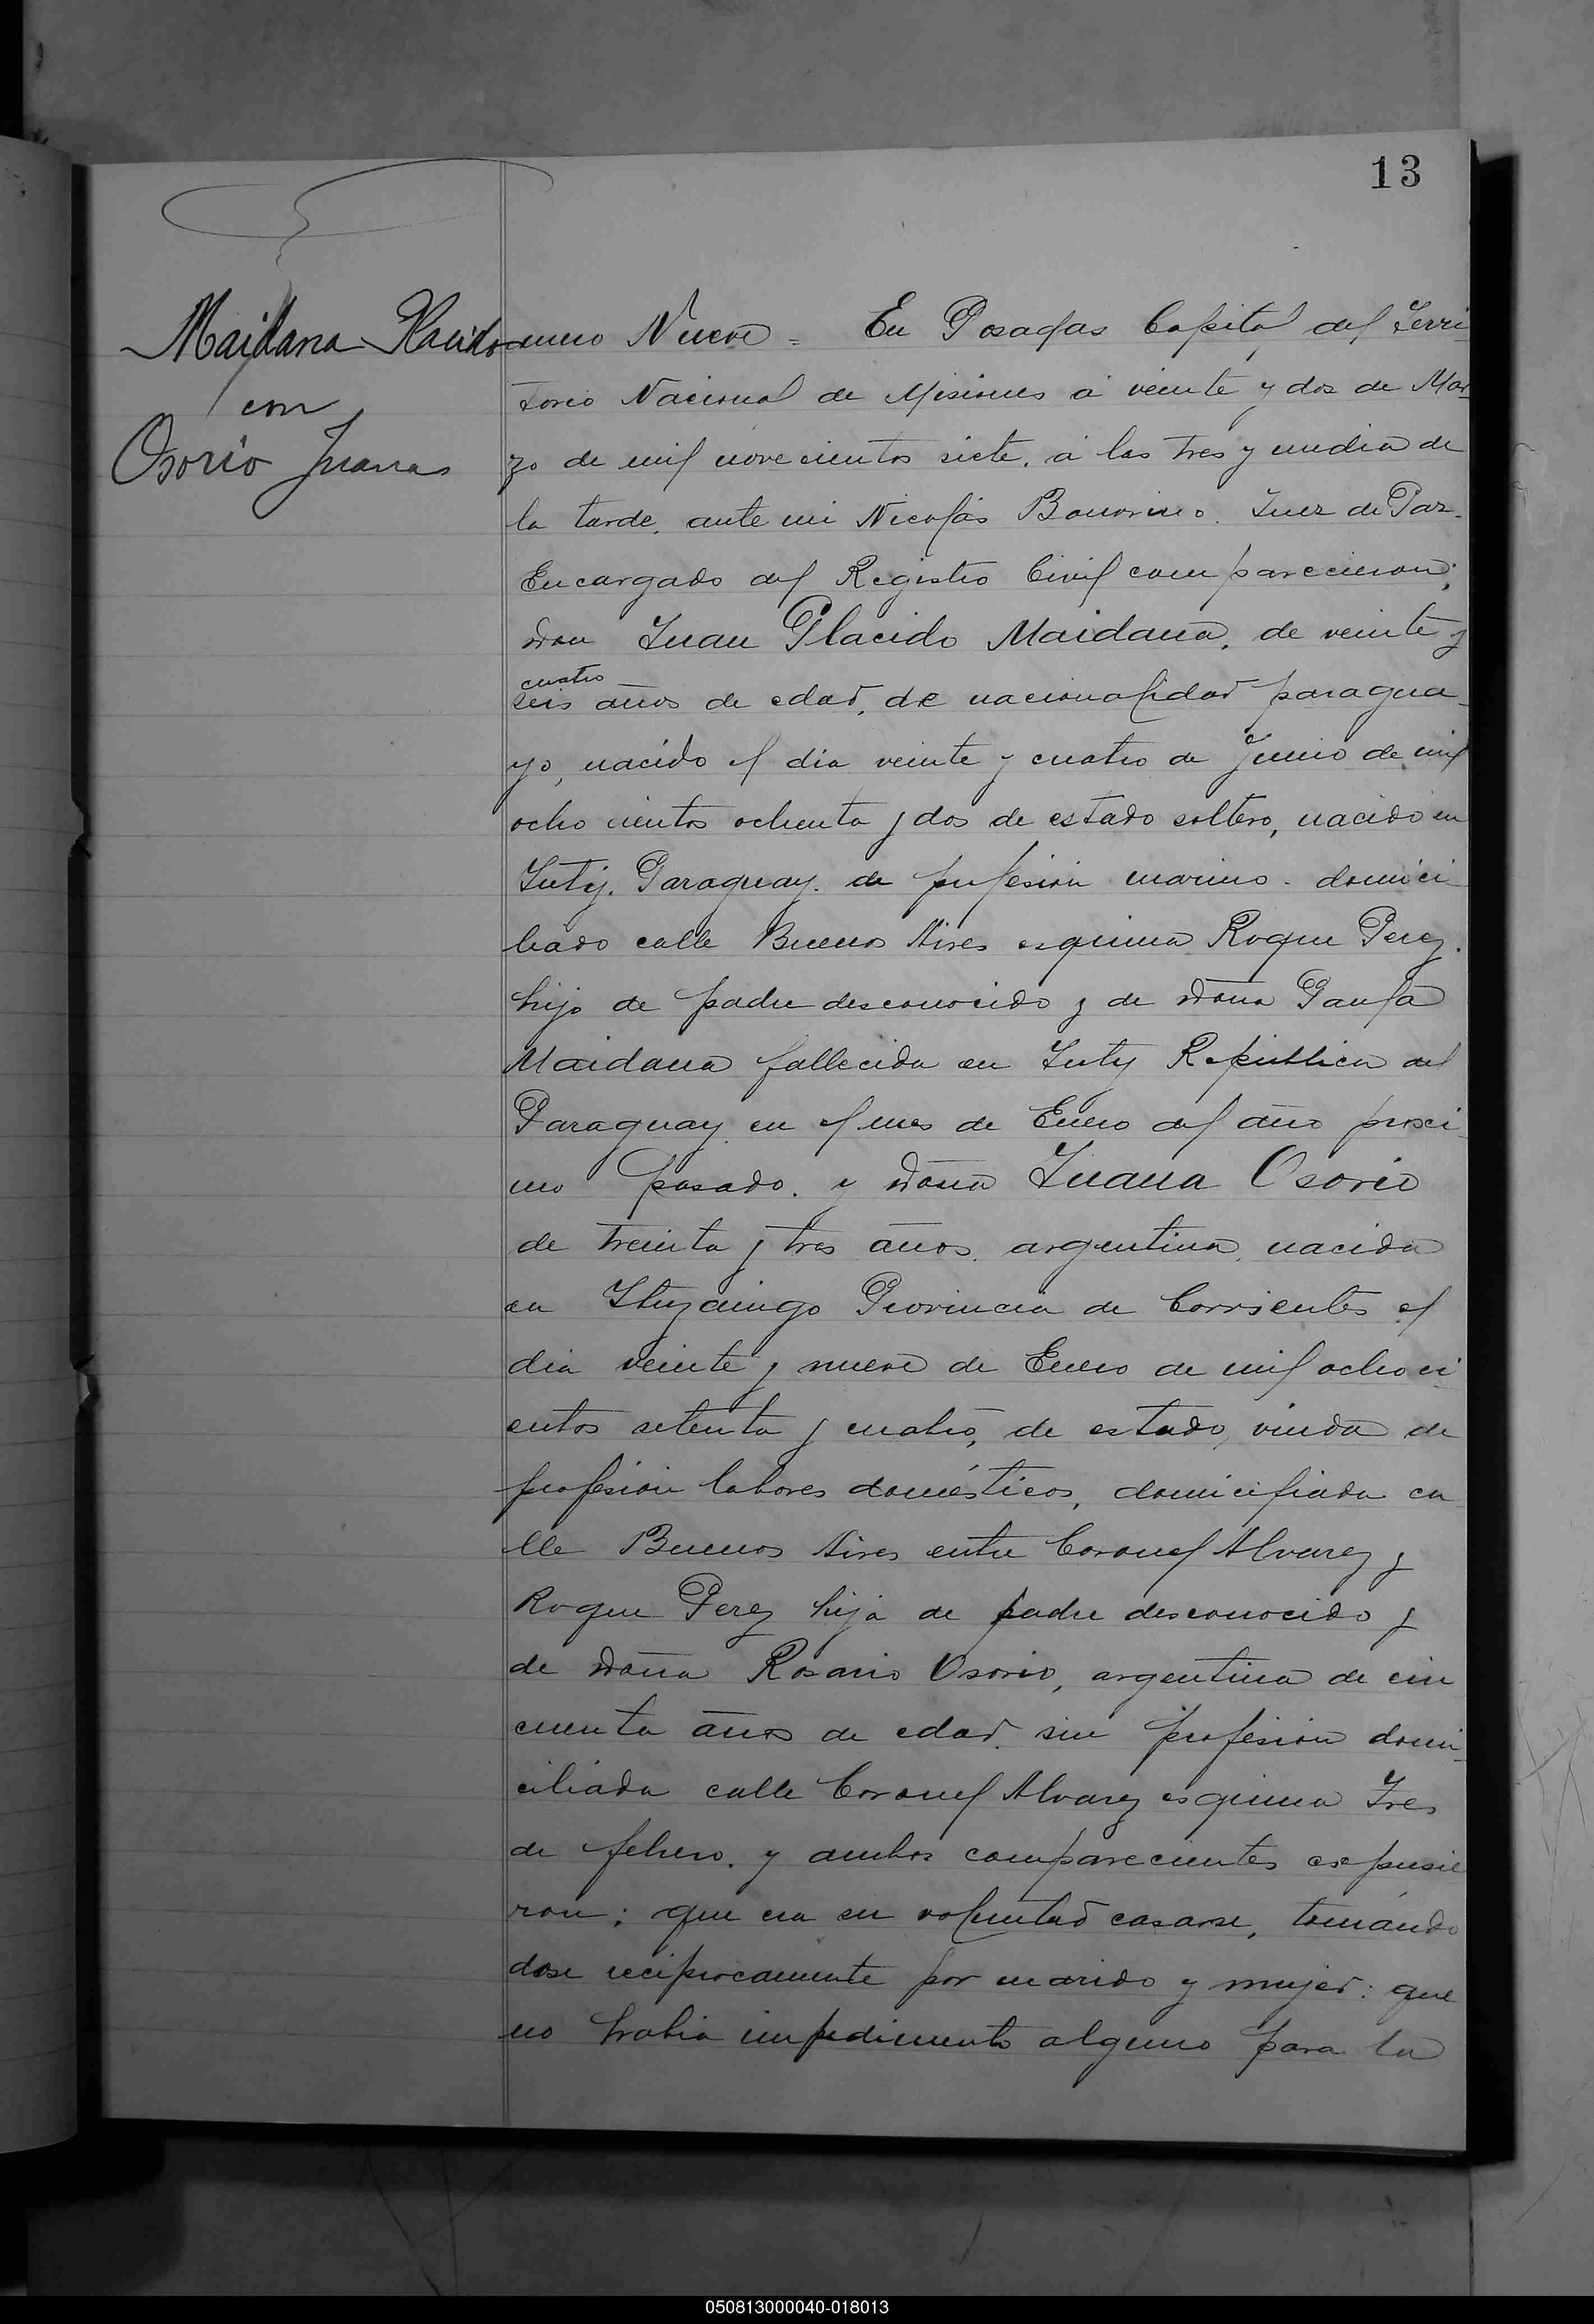 13
Maidana Placido
con
Osorio Juana
mero Nueve = En Posadas Capital del Terri-
torio Nacional de Misiones á veinte y dos de Mar-
zo de mil novecientos siete, á las tres y media de
la tarde, ante mi Nicolás Bonorino. Juez de Paz.
Encargado del Registro Civil comparecieron;
Don Juan Placido Maidana, de veinte y
cuatro
seis años de edad, de nacionalidad paragua-
yo, nacido el dia veinte y cuatro de Junio de mil
ocho cientos ochenta y dos de estado soltero, nacido en
Yuty. Paraguay. de profesión marino - domici-
liado calle Buenos Aires esquina Roque Perez.
hijo de padre desconocido y de Doña Paula
Maidana fallecida en Yuty República del
Paraguay en el mes de Enero del año proxi-
mo pasado. y Doña Juana Osorio
de treinta y tres años. argentina, nacida
en Ituzaingo Provincia de Corrientes el
dia veinte y nueve de Enero de mil ochoci-
entos setenta y cuatro, de estado, viuda de
profesión labores domésticos, domiciliada ca
lle Buenos Aires entre Coronel Alvarez y
Roque Perez hija de padre desconocido y
de Doña Rosario Osorio, argentina de cin
cuenta años de edad. sin profesión domi-
ciliada calle Coronel Alvarez esquina Tres
de febrero. y ambos comparecientes expusie
ron; que era su voluntad casarse, tomándo
dose reciprocamente por marido y mujer: que
no habia impedimento alguno para la
050813000040-018013